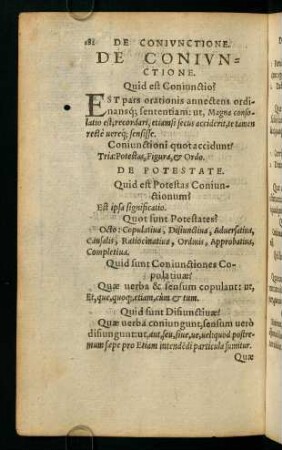 181 DE CONIVNCTIONE.
DE CONIVN-
CTIONE.
Quid est Coniunctio?
EST pars orationis annectens ordi-
nansq́; sententiam: ut, Magna conso-
latio est, recordari, etiamsi secus acciderit, te tamen
rectè uereq́; sensisse.
Coniunctioni quot accidunt?
Tria: Potestas, Figura, & Ordo.
DE POTESTATE.
Quid est Potestas Coniun-
ctionum?
Est ipsa significatio.
Quot sunt Potestates?
Octo: Copulatiua, Disiunctiua, Aduersatiua,
Causalis, Ratiocinatiua, Ordinis, Approbatiua,
Completiua.
Quid sunt Coniunctiones Co-
pulatiuæ?
Quæ uerba & sensum copulant: ut,
Et, que, quoq́;, etiam, cùm & tum.
Quid sunt Disiunctiuæ?
Quæ uerba coniungunt, sensum uerò
disiungunt: ut, aut, seu, siue, ue, uel: quod postre-
mum sæpe pro Etiam intendēdi particula sumitur.
Quæ